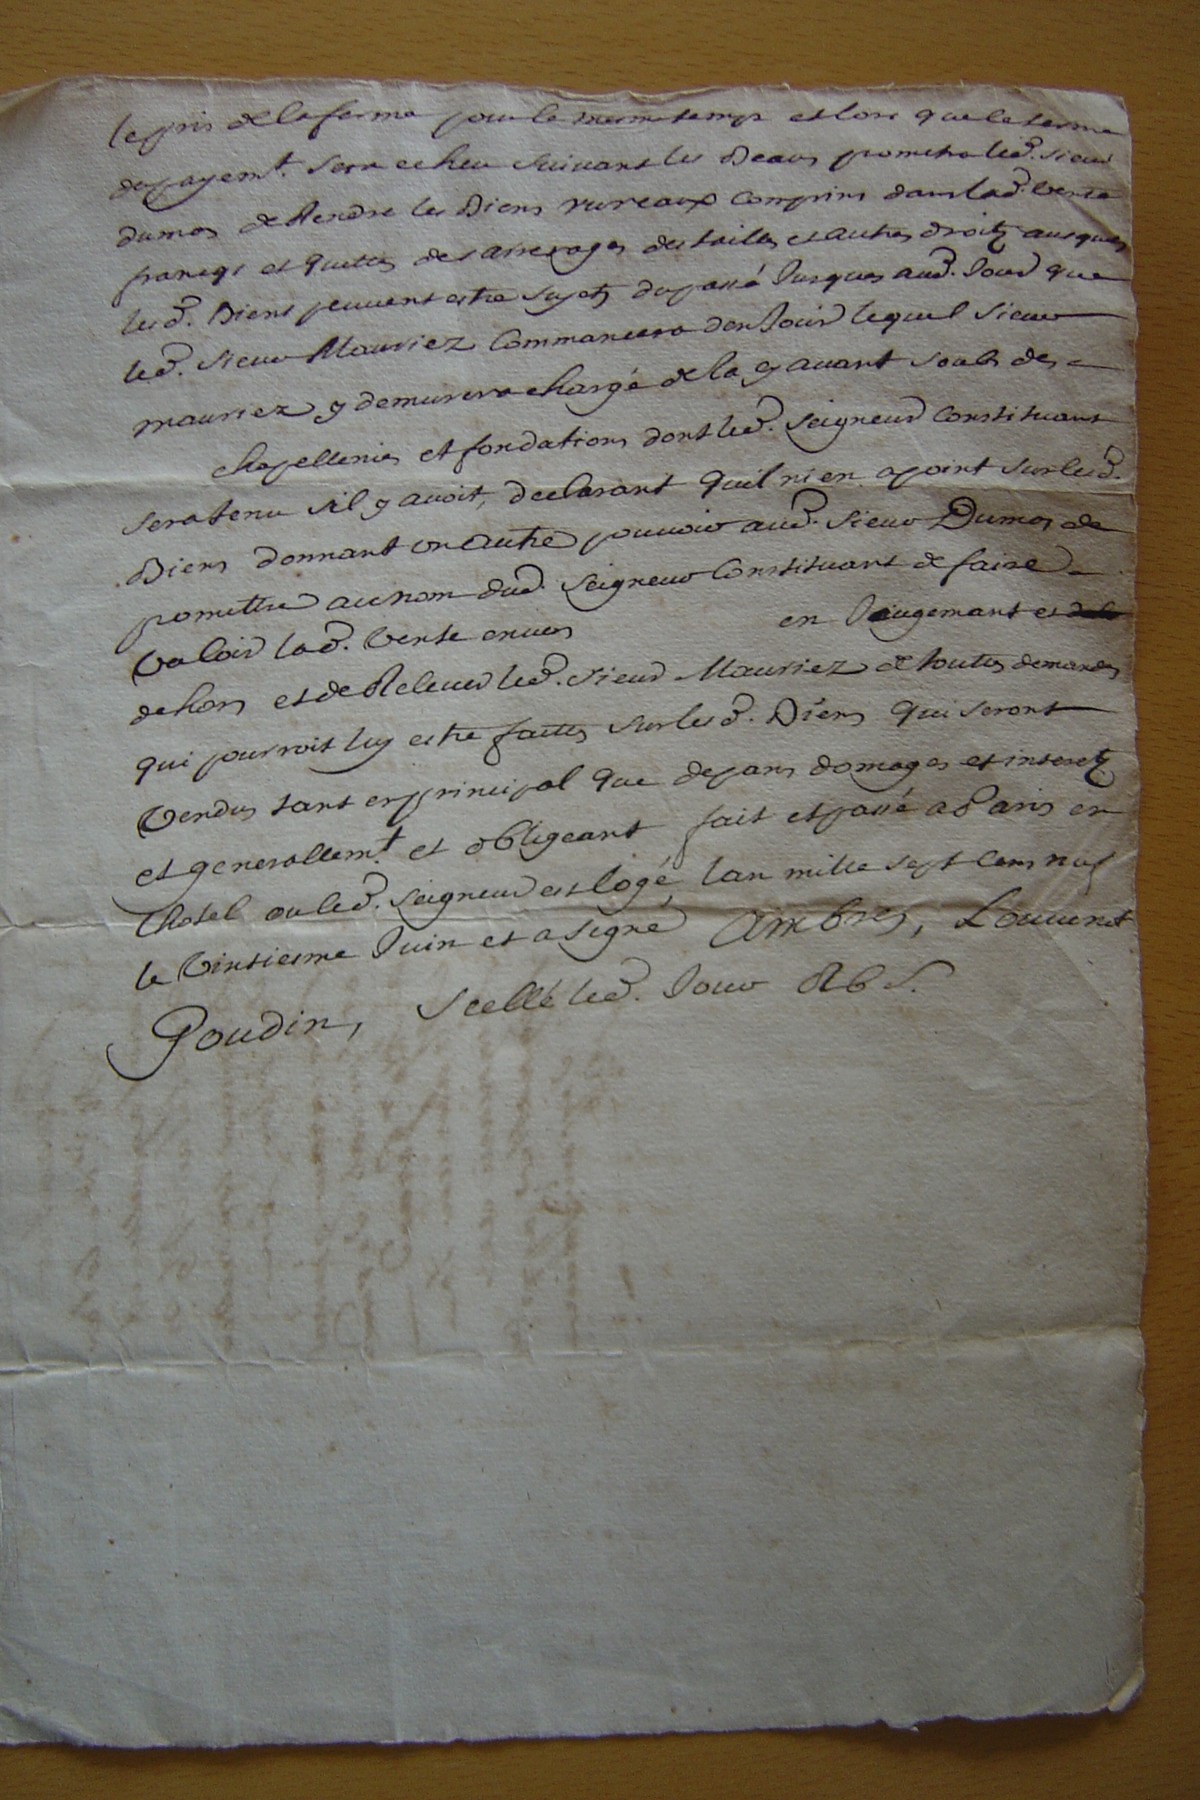 le pris de la ferme pour le mesme temps et lors que le terme
du payemt. sera echeu suivant les Beaus prometra led. sieur
dumas de Rendre les Biens rureaux comprins dans lad. vente
francqs et quittes des arrerages des tailles et autres droitz ausquels
lesd. Biens peuvent estre sujetz du passé Jusques aud. Jour que
led. sieur Mauriez Commancera den Jouir lequel sieur
mauriez y demurera chargé de la en avant des
chapellenies et fondations dont led. seigneur Constituant
sera tenu sil y avoit, declarant quil ni en a point sur lesd.
Biens donnant en outre pouvoir aud. sieur Dumas de
promettre au nom dud. seigneur Constituant de faire
valoir lad. vente envers en Jeugemant et
dehors et de Relever led. sieur Mauriez de toutes demandes
qui pourroit luy estre faittes sur lesd. Biens qui seront
vendus tant en principal que depans domages et interetz
et generallemt. et obligeant fait et passé a Paris en
lhotel ou led. seigneur est logé, lan mille sept cens nuf
le vintiesme Juin et a signé Ambres, Louvenet
Goudin, scellé led. Jour R b S.